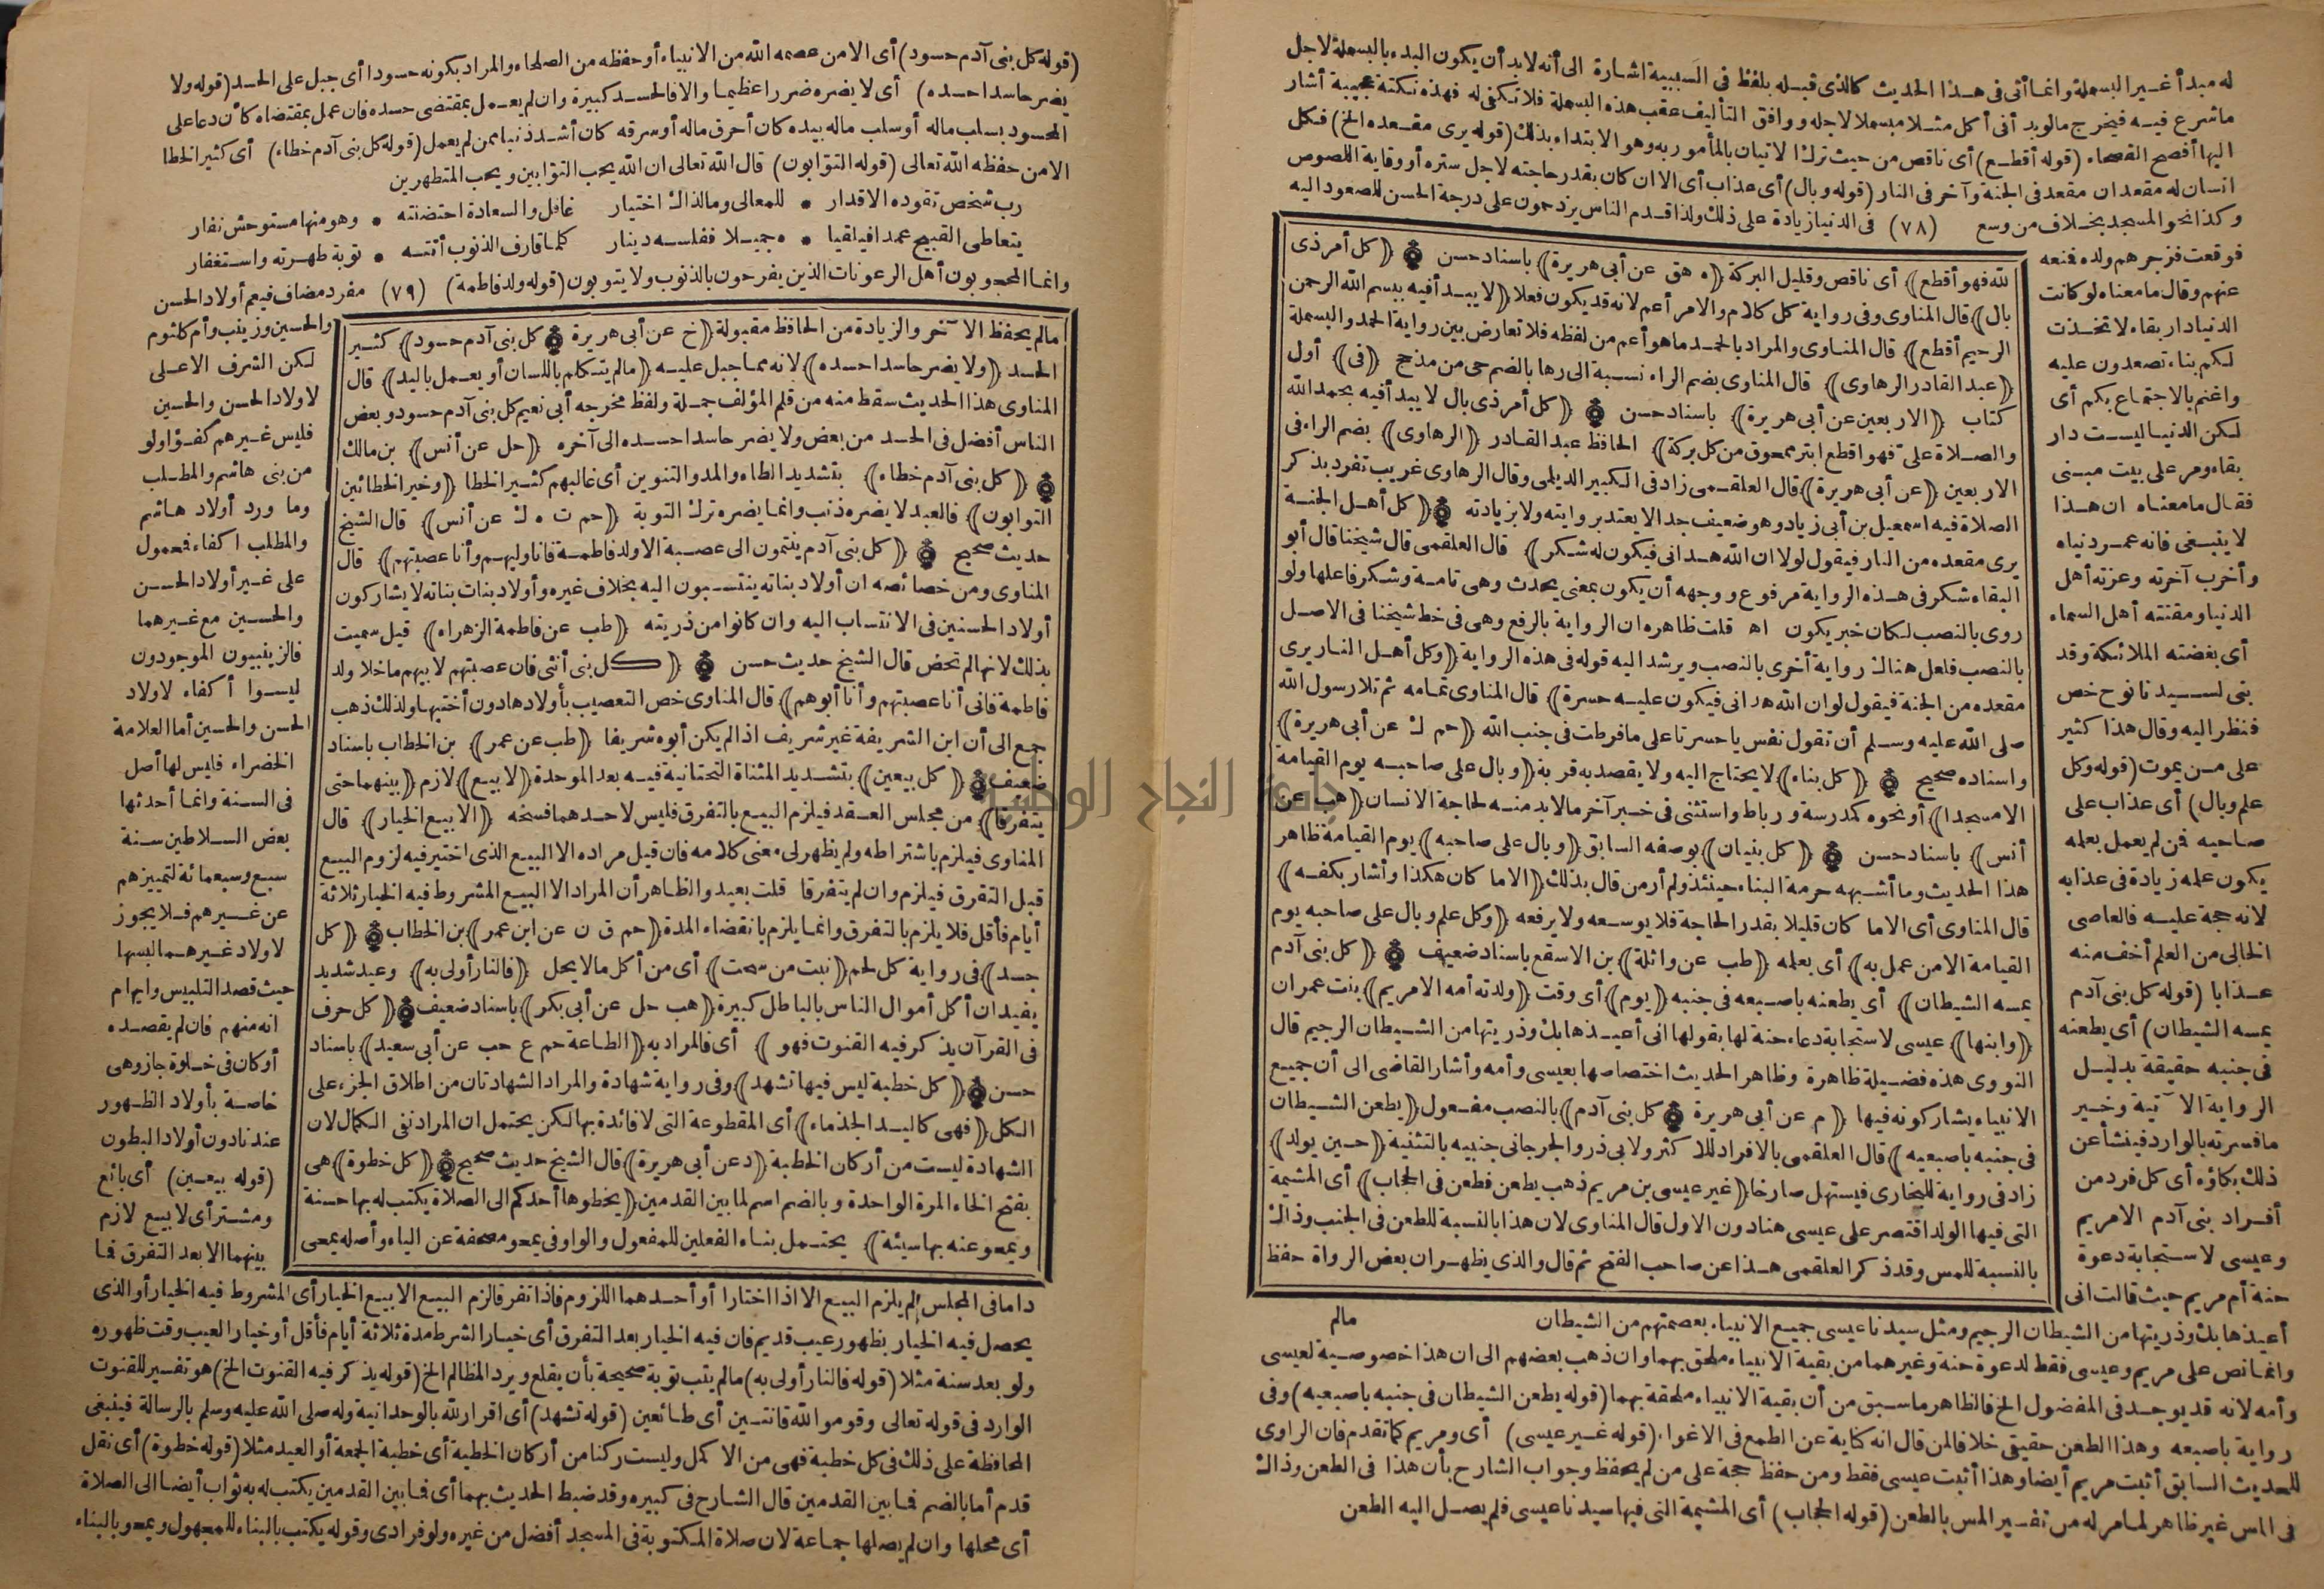 له مبدأ غير البسملة وانما أتى فى هذا الحديث كالذى قبله بلفظ فى السببية اشارة الى أنه لابد أن يكون البدء بالبسملة لاجل
ماشرع فيه فيخرج مالو بدأ فى أكل مثلا مبسملا لاجله ووافق التأليف عقب هذه البسملة فلا تكفى له فهذه نكتة عجيبة أشار
اليها أفصح الفصحاء (قوله أقطع) أى ناقص من حيث ترك الاتيان بالمأمور به وهو الابتداء بذلك (قوله يرى مقعده الخ) فكل
انسان له مقعدان مقعد فى الجنة وآخر فى النار (قوله وبال) أى عذاب أى الا ان كان بقدر حاجته لاجل ستره أو وقاية اللصوص
وكذا نحو المسجد بخلاف من وسع (٧٨) فى الدنيا زيادة على ذلك ولذا قدم الناس يزدحمون على درجة الحسن للصعود اليه
فوقعت فزجرهم ولده فنعه
عنهم وقال ما معناه لو كانت
الدنيا دار بقاء لاتخذت
لكم بناء تصعدون عليه
واغنم بالاجتماع بكم أى
لكن الدنيا ليست دار
بقاء ومر على بيت مبنى
فقال ما معناه ان هذا
لا ينبغى فانه عمر دنياه
وأخرب آخرته وعزته أهل
الدنيا ومقتته أهل السماء
أى بغضته الملائكة وقد
بنى لسيدنا نوح خص
فنظر اليه وقال هذا كثير
على من يموت (قوله وكل
علم وبال) أى عذاب على
صاحبه فن لم يعمل بعلمه
يكون علمه زيادة فى عذابه
لانه حجة عليه فالعاصى
الخالى من العلم أخف منه
عذابا (قوله كل بنى آدم
يمسه الشيطان) أى يطعنه
فى جنبه حقيقة بدليل
الرواية الآتية وخير
ما فسرته بالوارد فينشأ عن
ذلك بكاؤه أى كل فرد من
أفراد بنى آدم الامريم
وعيسى لاستجابة دعوة
حنة أم مريم حيث قالت انى
لله فهو أقطع) أى ناقص وقليل البركة (ه هق عن أبى هريرة) باسناد حسن (كل أمر ذى
بال) قال المناوى وفى رواية كل كلام والامر أعم لانه قد يكون فعلا (لا يبدأ فيه ببسم الله الرحمن
الرحيم أقطع) قال المناوى والمراد بالحمد ما هو أعم من لفظه فلا تعارض بين رواية الحمد والبسملة
(عبد القادر الرهاوى) قال المناوى بضم الراء نسبة الى رها بالضم حى من مذحج (فى) أول
كتاب (الاربعين عن أبى هريرة) باسناد حسن (كل أمر ذى بال لا يبدأ فيه بحمد الله
والصلاة على فهو أقطع ابتر ممحوق من كل بركة) الحافظ عبد القادر (الرهاوى) بضم الراء فى
الاربعين (عن أبى هريرة) قال العلقمى زاد فى الكبير الديلمى وقال الرهاوى غريب تفرد بذكر
الصلاة فيه اسمعيل بن أبى زياد وهو ضعيف جدا لا يعتد بروايته ولا بزيادته (كل أهل الجنة
يرى مقعده من النار فيقول لولا ان الله هدانى فيكون له شكر) قال العلقمى قال شيخنا قال أبو
البقاء شكر فى هذه الرواية مرفوع ووجهه أن يكون بمعنى يحدث وهى تامة وشكر فاعلها ولو
روى بالنصب لكان خبر يكون اه قلت ظاهره ان الرواية بالرفع وهى فى خط شيخنا فى الاصل
بالنصب فلعل هناك رواية أخرى بالنصب ويرشد اليه قوله فى هذه الرواية (وكل أهل النار يرى
مقعده من الجنة فيقول لو ان الله هدانى فيكون عليه حسرة) قال المناوى تمامه ثم تلا رسول الله
صلى الله عليه وسلم أن تقول نفس يا حسرتا على ما فرطت فى جنب الله (حم ك عن أبى هريرة)
واسناده صحيح (كل بناء) لا يحتاج اليه ولا يقصد به قربة (وبال على صاحبه يوم القيامة
الا مسجدا) أو نحوه كمدرسة ورباط واستثنى فى خبر آخر مالا بد منه لحاجة الانسان (هب عن
أنس) باسناد حسن (كل بنيان) بوصفه السابق (وبال على صاحبه) يوم القيامة ظاهر
هذا الحديث وما أشبهه حرمة البناء حينئذ ولم أر من قال بذلك (الا ما كان هكذا وأشار بكفه)
قال المناوى أى الا ما كان قليلا بقدر الحاجة فلا يوسعه ولا يرفعه (وكل علم وبال على صاحبه يوم
القيامة الا من عمل به) أى بعلمه (طب عن واثلة) بن الاسقع باسناد ضعيف (كل بنى آدم
يمسه الشيطان) أى يطعنه باصبعه فى جنبه (يوم) أى وقت (ولدته أمه الامريم) بنت عمران
(وابنها) عيسى لاستجابة دعاء حنة لها بقولها انى أعيذها بك وذريتها من الشيطان الرجيم قال
النووى هذه فضيلة ظاهرة وظاهر الحديث اختصاصها بعيسى وأمه وأشار القاضى الى أن جميع
الانبياء يشاركونه فيها (م عن أبى هريرة كل بنى آدم) بالنصب مفعول (يطعن الشيطان
فى جنبه باصبعيه) قال العلقمى بالافراد للاكثر ولابى ذر والجرجانى جنبيه بالتثنية (حين يولد)
زاد فى رواية للبخارى فيستهل صارخا (غير عيسى بن مريم ذهب يطعن فطعن فى الحجاب) أى المشيمة
التى فيها الولد اقتصر على عيسى هنا دون الاول قال المناوى لان هذا بالنسبة للطعن فى الجنب وذاك
بالنسبة للمس وقد ذكر العلقمى هذا عن صاحب الفتح ثم قال والذى يظهر ان بعض الرواة حفظ
أعيذها بك وذريتها من الشيطان الرجيم ومثل سيدنا عيسى جميع الانبياء بعصمتهم من الشيطان مالم
وانما نص على مريم وعيسى فقط لدعوة حنة وغيرهما من بقية الانبياء ملحق بهما وان ذهب بعضهم الى ان هذا خصوصية لعيسى
وأمه لانه قد يوجد فى المفضول الخ فالظاهر ما سبق من أن بقية الانبياء ملحقة بهما (قوله يطعن الشيطان فى جنبه باصبعيه) وفى
رواية باصبعه وهذا الطعن حقيقى خلافا لمن قال انه كناية عن الطمع فى الاغواء (قوله غير عيسى) أى ومريم كما تقدم فان الراوى
للحديث السابق أثبت مريم أيضا وهذا أثبت عيسى فقط ومن حفظ حجة على من لم يحفظ وجواب الشارح بأن هذا فى الطعن وذاك
فى المس غير ظاهر لما مر له من تفسير المس بالطعن (قوله الحجاب) أى المشيمة التى فيها سيدنا عيسى فلم يصل اليه الطعن
(قوله كل بنى آدم حسود) أى الا من عصمه الله من الانبياء أو حفظه من الصلحاء والمراد بكونه حسودا أى جبل على الحسد (قوله ولا
يضر حاسدا حسده) أى لا يضره ضررا عظيما والا فالحسد كبيرة وان لم يعمل بمقتضى حسده فان عمل بمقتضاه كأن دعا على
المحسود بسلب ماله أو سلب ماله بيده كان أحرق ماله أو سرقه كان أشد ذنبا ممن لم يعمل (قوله كل بنى آدم خطاء) أى كثير الخطا
الا من حفظه الله تعالى (قوله التوابون) قال الله تعالى ان الله يحب التوابين ويحب المتطهرين
رب شخص تقوده الاقدار * للمعالى وما لذاك اختيار غافل والسعادة احتضنته * وهو منها مستوحش نفار
يتعاطى القبيح عمدا فيلقيا * ه جميلا ففلسه دينار كلما قارف الذنوب أتته * توبة طهرته واستغفار
وانما المحجوبون أهل الرعونات الذين يفرحون بالذنوب ولا يتوبون (قوله ولد فاطمة) (٧٩) مفرد مضاف فيعم أولاد الحسن
مالم يحفظ الآخر والزيادة من الحافظ مقبولة (خ عن أبى هريرة كل بنى آدم حسود) كثير
الحسد (ولا يضر حاسدا حسده) لانه مما جبل عليه (مالم يتكلم باللسان أو يعمل باليد) قال
المناوى هذا الحديث سقط منه من قلم المؤلف جملة ولفظ مخرجه أبى نعيم كل بنى آدم حسود وبعض
الناس أفضل فى الحسد من بعض ولا يضر حاسدا حسده الى آخره (حل عن أنس) بن مالك
(كل بنى آدم خطاء) بتشديد الطاء والمد والتنوين أى غالبهم كثير الخطا (وخير الخطائين
التوابون) فالعبد لا يضره ذنب وانما يضره ترك التوبة (حم ت ه ك عن أنس) قال الشيخ
حديث صحيح (كل بنى آدم ينتمون الى عصبة الا ولد فاطمة فانا وليهم وأنا عصبتهم) قال
المناوى ومن خصائصه ان أولاد بناته ينتسبون اليه بخلاف غيره وأولاد بنات بناته لا يشاركون
أولاد الحسنين فى الانتساب اليه وان كانوا من ذريته (طب عن فاطمة الزهراء) قيل سميت
بذلك لانها لم تحض قال الشيخ حديث حسن (كل بنى أنثى فان عصبتهم لابيهم ماخلا ولد
فاطمة فانى أنا عصبتهم وأنا أبوهم) قال المناوى خص التعصيب بأولادها دون أختيها ولذلك ذهب
جمع الى أن ابن الشريفة غير شريف اذا لم يكن أبوه شريفا (طب عن عمر) بن الخطاب باسناد
ضعيف (كل بيعين) بتشديد المثناة التحتانية فيه بعد الموحدة (لا بيع) لازم (بينهما حتى
يتفرقا) من مجلس العقد فيلزم البيع بالتفرق فليس لاحدهما فسخه (الا بيع الخيار) قال
المناوى فيلزم باشتراطه ولم يظهر لى معنى كلامه فان قيل مراده الا البيع الذى اختير فيه لزوم البيع
قبل التفرق فيلزم وان لم يتفرقا قلت بعيد والظاهر أن المراد الا البيع المشروط فيه الخيار ثلاثة
أيام فأقل فلا يلزم بالتفرق وانما يلزم بانقضاء المدة (حم ق ن عن ابن عمر) بن الخطاب (كل
جسد) فى رواية كل لحم (نبت من سحت) أى من أكل مالا يحل (فالنار أولى به) وعيد شديد
يفيد ان أكل أموال الناس بالباطل كبيرة (هب حل عن أبى بكر) باسناد ضعيف (كل حرف
فى القرآن يذكر فيه القنوت فهو) أى فالمراد به (الطاعة حم ع حب عن أبى سعيد) باسناد
حسن (كل خطبة ليس فيها تشهد) وفى رواية شهادة والمراد الشهادتان من اطلاق الجزء على
الكل (فهى كاليد الجذماء) أى المقطوعة التى لا فائدة بها لكن يحتمل ان المراد نفى الكمال لان
الشهادة ليست من أركان الخطبة (د عن أبى هريرة) قال الشيخ حديث صحيح (كل خطوة) هى
بفتح الخاء المرة الواحدة وبالضم اسم لما بين القدمين (يخطوها أحدكم الى الصلاة يكتب له بها حسنة
ويمحو عنه بها سيئة) يحتمل بناء الفعلين للمفعول والواو فى يمحو مصحفة عن الياء وأصله يمحى
والحسين وزينب وأم كلثوم
لكن الشرف الاعلى
لاولاد الحسن والحسين
فليس غيرهم كفؤا ولو
من بنى هاشم والمطلب
وما ورد أولاد هاشم
والمطلب اكفاء فمحمول
على غير أولاد الحسن
والحسين مع غيرهما
فالزينبيون الموجودون
ليسوا أكفاء لاولاد
الحسن والحسين أما العلامة
الخضراء فليس لها أصل
فى السنة وانما أحدثها
بعض السلاطين سنة
سبع وسبعمائة لتمييزهم
عن غيرهم فلا يجوز
لاولاد غيرهما لبسها
حيث قصد التلبيس وايهام
انه منهم فان لم يقصده
أو كان فى خلوة جاز وهى
خاصة بأولاد الظهور
عندنا دون أولاد البطون
(قوله بيعين) أى بائع
ومشتر أى لا بيع لازم
بينهما الا بعد التفرق فما
داما فى المجلس لم يلزم البيع الا اذا اختارا أو أحدهما اللزوم فاذا تفرقا لزم البيع الا بيع الخيار أى المشروط فيه الخيار أو الذى
يحصل فيه الخيار بظهور عيب قديم فان فيه الخيار بعد التفرق أى خيار الشرط مدة ثلاثة أيام فأقل أو خيار العيب وقت ظهوره
ولو بعد سنة مثلا (قوله فالنار أولى به) مالم يتب توبة صحيحة بأن يقلع ويرد المظالم الخ (قوله يذكر فيه القنوت الخ) هو تفسير للقنوت
الوارد فى قوله تعالى وقوموا لله قانتين أى طائعين (قوله تشهد) أى اقرار لله بالوحدانية وله صلى الله عليه وسلم بالرسالة فينبغى
المحافظة على ذلك فى كل خطبة فهى من الاكمل وليست ركنا من أركان الخطبة أى خطبة الجمعة أو العيد مثلا (قوله خطوة) أى نقل
قدم أما بالضم فما بين القدمين قال الشارح فى كبيره وقد ضبط الحديث بهما أى فما بين القدمين يكتب له به ثواب أيضا الى الصلاة
أى محلها وان لم يصلها جماعة لان صلاة المكتوبة فى المسجد أفضل من غيره ولو فرادى وقوله يكتب بالبناء للمجهول ويمحو بالبناء
جامعة النجاح الوطنية